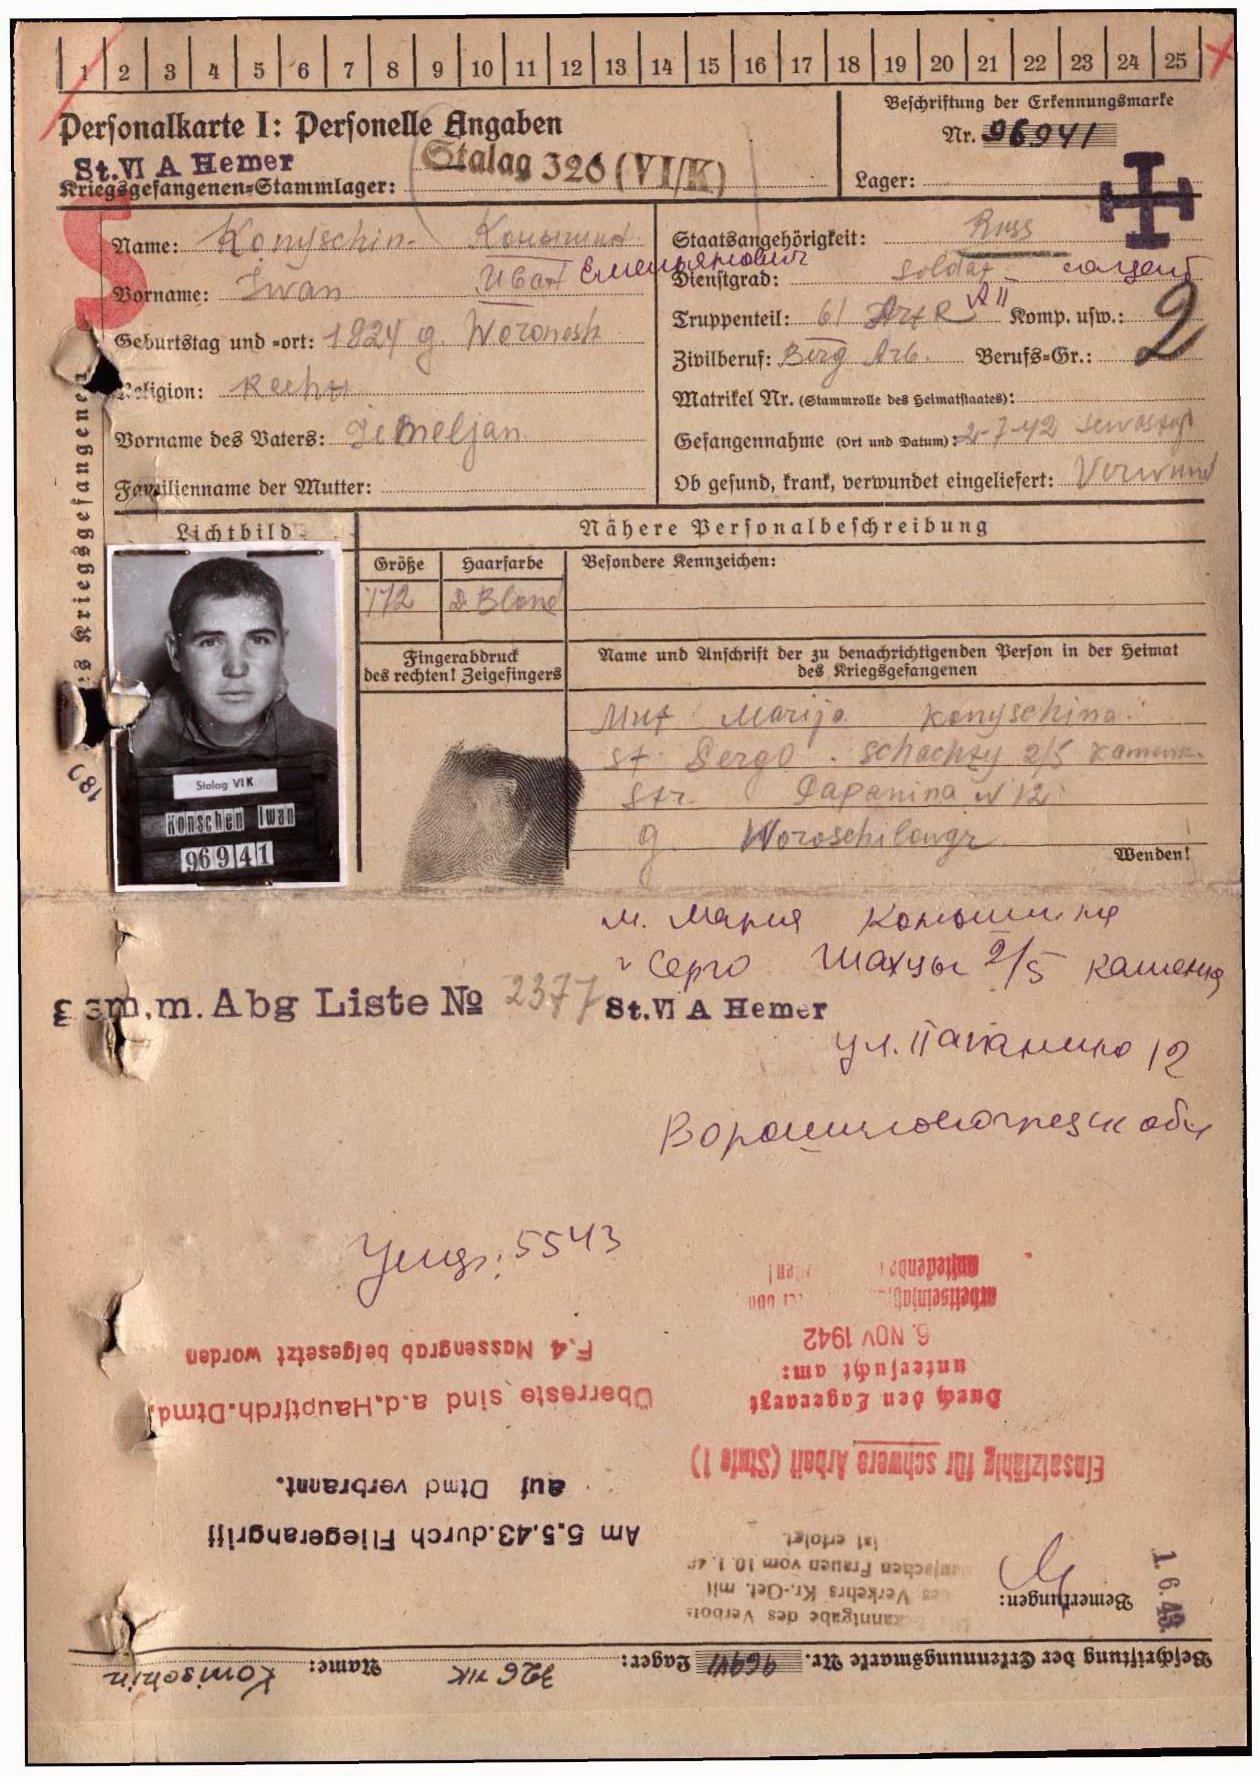 1 2 3 4 5 6 7 8 9 10 11 12 13 14 15 16 17 18 19 20 21 22 23 24 25
Personalkarte I: Personelle Angaben
St. VI A Hemer
Kriegsgefangenen-Stammlager: Stalag 326 (VI/K)
Beschriftung der Erkennungsmarke
Nr. 96941
Lager:
Name: Konyschin Конышин
Vorname: Iwan Иван Емельянович
Geburtstag und -ort: 1924 g. Woronesh
Religion:
Vorname des Vaters: Jemeljan
Familienname der Mutter:
Staatsangehörigkeit: Russ
Dienstgrad: Soldat
Truppenteil: 61 Art R Komp. usw.: 2
Zivilberuf: Berg Arb. Berufs-Gr.:
Matrikel Nr. (Stammrolle des Heimatstaates):
Gefangennahme (Ort und Datum): 2-7-42 Sewastop
Ob gesund, krank, verwundet eingeliefert: Verwund
Kriegsgefangenen
Lichtbild
Nähere Personalbeschreibung
Größe Haarfarbe Besondere Kennzeichen:
172 D Blond
Fingerabdruck
des rechten! Zeigefingers
Name und Anschrift der zu benachrichtigenden Person in der Heimat
des Kriegsgefangenen
Mut Marija Konyschina
st Sergo Schachty 2/5 Kamenk.
Str. Papanina N 12
g. Woroschilowgr
Wenden!
Stalag VI K
Konschen Iwan
96941
м. Мария Конышина
г Серго Шахты 2/5 каменка
Abg Liste № 2377 St. VI A Hemer
ул. Папанина 12
Ворошиловоградск обл
5543
F.4 Massengrab beigesetzt worden
Überreste sind a.d.Hauptfrdh.Dtmd.
auf Dtmd verbrannt.
Am 5.5.43.durch Fliegerangriff
6. NOV 1942
untersucht am:
Durch den Lagerarzt
Einsatzfähig für schwere Arbeit (Stufe I)
ist erfolgt.
Frauen vom 10.1.
Verkehrs Kr.-Gef. mit
des Verbots
Bemerkungen:
1. 6. 43.
Beschriftung der Erkennungsmarke Nr. 96941 Lager: 326 VIK Name: Komischin